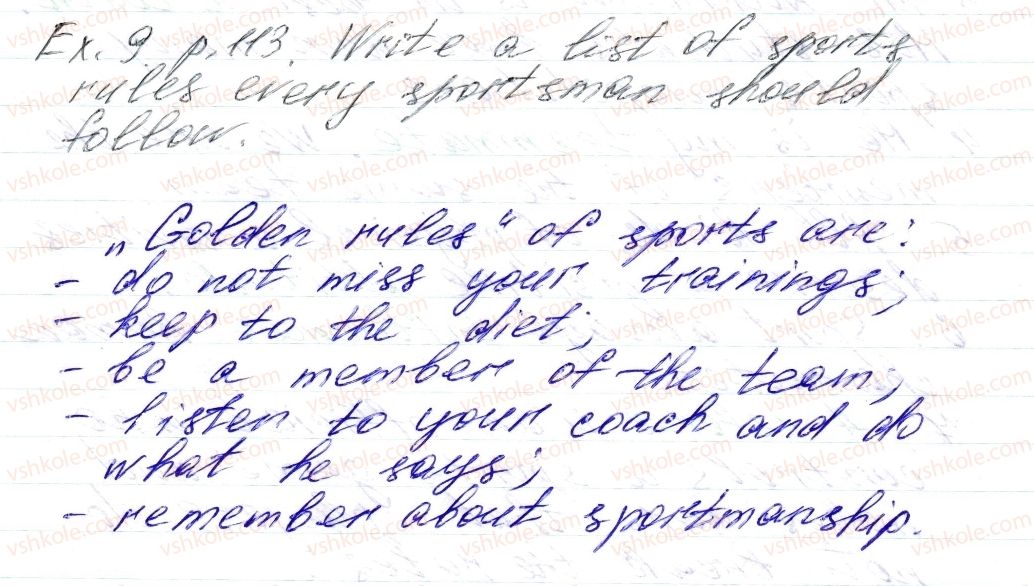 Ex. 9 p. 113. Write a list of sports
rules every sportsman should
follow.
„Golden rules" of sports are:
- do not miss your trainings;
- keep to the diet;
- be a member of the team;
- listen to your coach and do
what he says;
- remember about sportmanship.